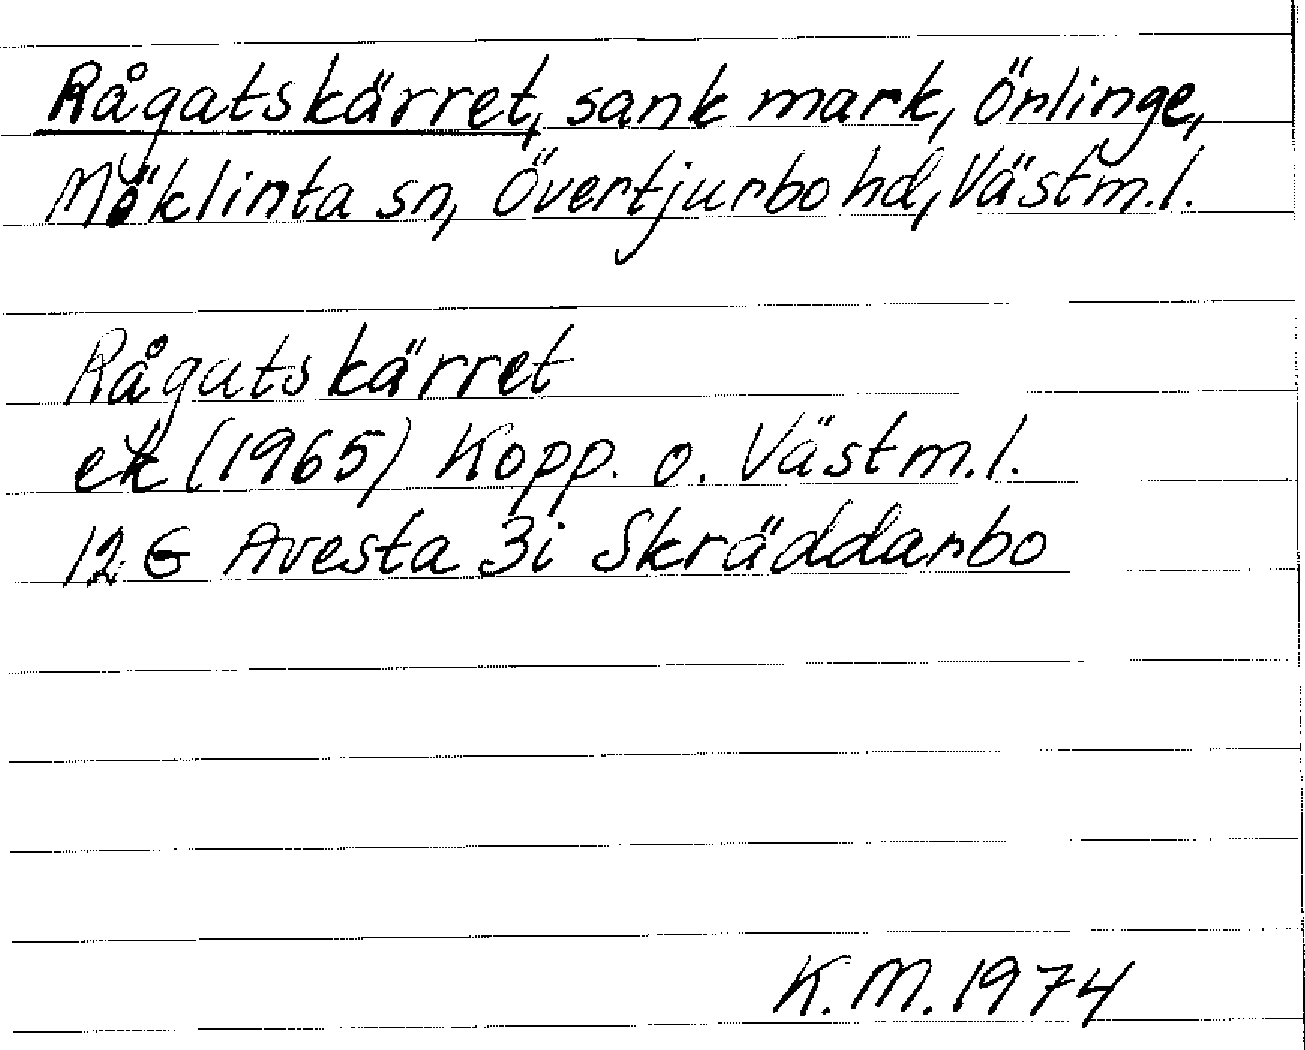 Rågatskärret, sank mark, Önlinge,
Möklinta sn, Övertjurbo hd, Västm.l.
Rågatskärret
ek (1965) Kopp. o. Västm.l.
12 G Avesta 3i Skräddarbo
K.M. 1974